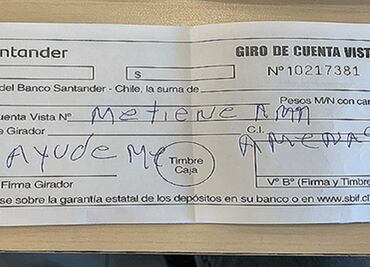 antander GIRO DE CUENTA VIST
$ Nº 10217381
del Banco Santander - Chile, la suma de
Pesos M/N con car
uenta Vista Nº Me tiene Ama
e Girador C.I. AMENAC
AYUDE Me
Timbre
Caja
Firma Girador Vº Bº (Firma y Timbre
se sobre la garantía estatal de los depósitos en su banco o en www.sbif.cl